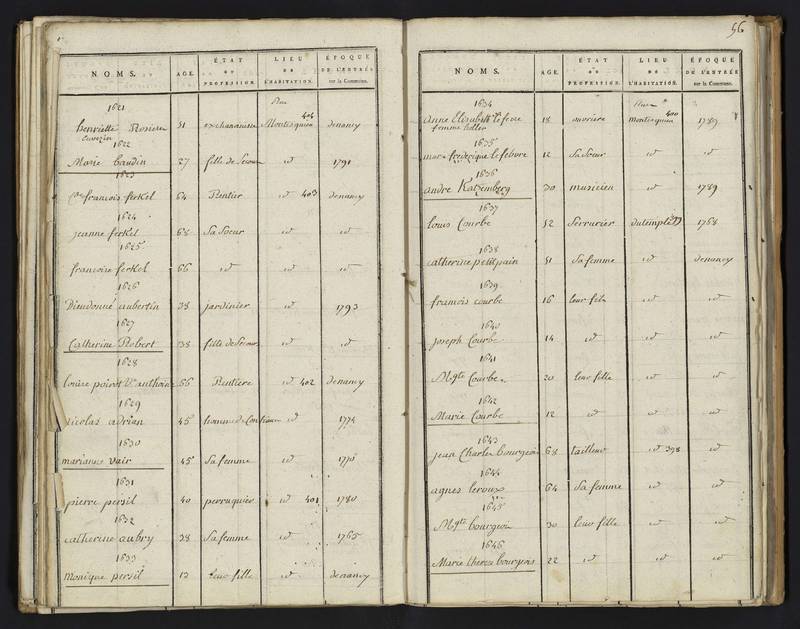 NOMS. AGE. ÉTAT OU PROFESSION. LIEU DE L'HABITATION. ÉPOQUE DE L'ENTRÉE sur la Commune.
1621 Rue
henriette Rosiere 51 Montesquieu 404 denancy
1622
Marie baudin 27 fille de id 1791
1623
françois ferkel 64 Rentier id 403 denancy
1624
jeanne ferkel 68 Sa Soeur id id
1625
francoise ferkel 66 id id id
1626
Dieudonné aubertin 38 jardinier id 1793
1627
Catherine Robert 38 fille de id id
1628
Louise poirot Ve anthoine 66 Rentiere id 402 denancy
1629
nicolas adrian 45 homme de Confiance id 1774
1630
marianne vair 45 Sa femme id 1770
1631
pierre persil 40 perruquier id 401 1780
1632
catherine aubry 38 Sa femme id 1765
1633
Monique persil 12 leur fille id denancy
56
NOMS. AGE. ÉTAT OU PROFESSION. LIEU DE L'HABITATION. ÉPOQUE DE L'ENTRÉE sur la Commune.
1634 Rue
Anne Elisabeth lefevre 18 ouvriere Montesquieu 400 1789
femme
1635
frederique lefebvre 12 Sa Soeur id id
1636
andre Katzenberg 30 musicien id 1789
1637
louis Courbe 52 Serrurier dutemple 1768
1638
catherine petitpain 51 Sa femme id denancy
1639
francois courbe 16 leur fils id id
1640
joseph Courbe 14 id id id
1641
Mgte Courbe 20 leur fille id id
1642
Marie Courbe 12 id id id
1643
jean Charles bourgeois 68 tailleur id 398 id
1644
agnes leroux 64 Sa femme id id
1645
Mgte bourgeois 30 leur fille id id
1646
Marie therese bourgeois 22 id id id